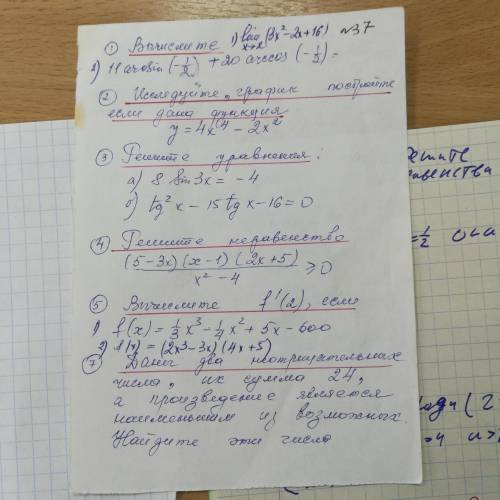 ① Вычислите 1) lim x→2 (3x² - 2x + 16) №37
2) 11 arcsin (-1/2) + 20 arccos (-1/2) =
② Исследуйте, график постройте
если дана функция
y = 4x⁴ - 2x²
③ Решите уравнения:
а) 8 sin 3x = -4
б) tg²x - 15 tg x - 16 = 0
④ Решите неравенство
(5-3x)(x-1)(2x+5) / x² - 4 ≥ 0
⑤ Вычислите f'(2), если
1) f(x) = 1/3 x³ - 1/4 x² + 5x - 600
2) f(x) = (2x³ - 3x)(4x + 5)
⑦ Даны два неотрицательных
числа, их сумма 24,
а произведение является
наименьшим из возможных.
Найдите эти числа
= 1/2